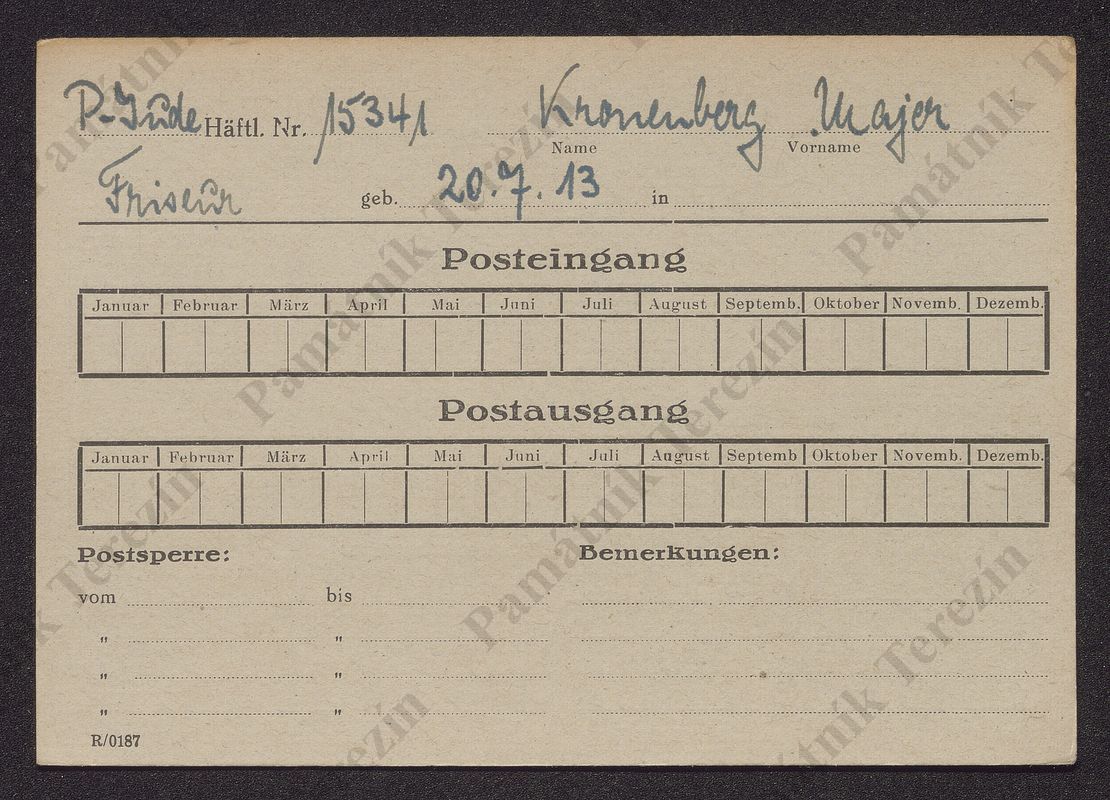 P-Jude Häftl. Nr. 15341 Kronenberg Majer
Name Vorname
Friseur geb. 20.7.13 in
Posteingang
Januar Februar März April Mai Juni Juli August Septemb. Oktober Novemb. Dezemb.
Postausgang
Januar Februar März April Mai Juni Juli August Septemb Oktober Novemb. Dezemb.
Postsperre: Bemerkungen:
vom bis
" "
" "
" "
R/0187
Památník Terezín